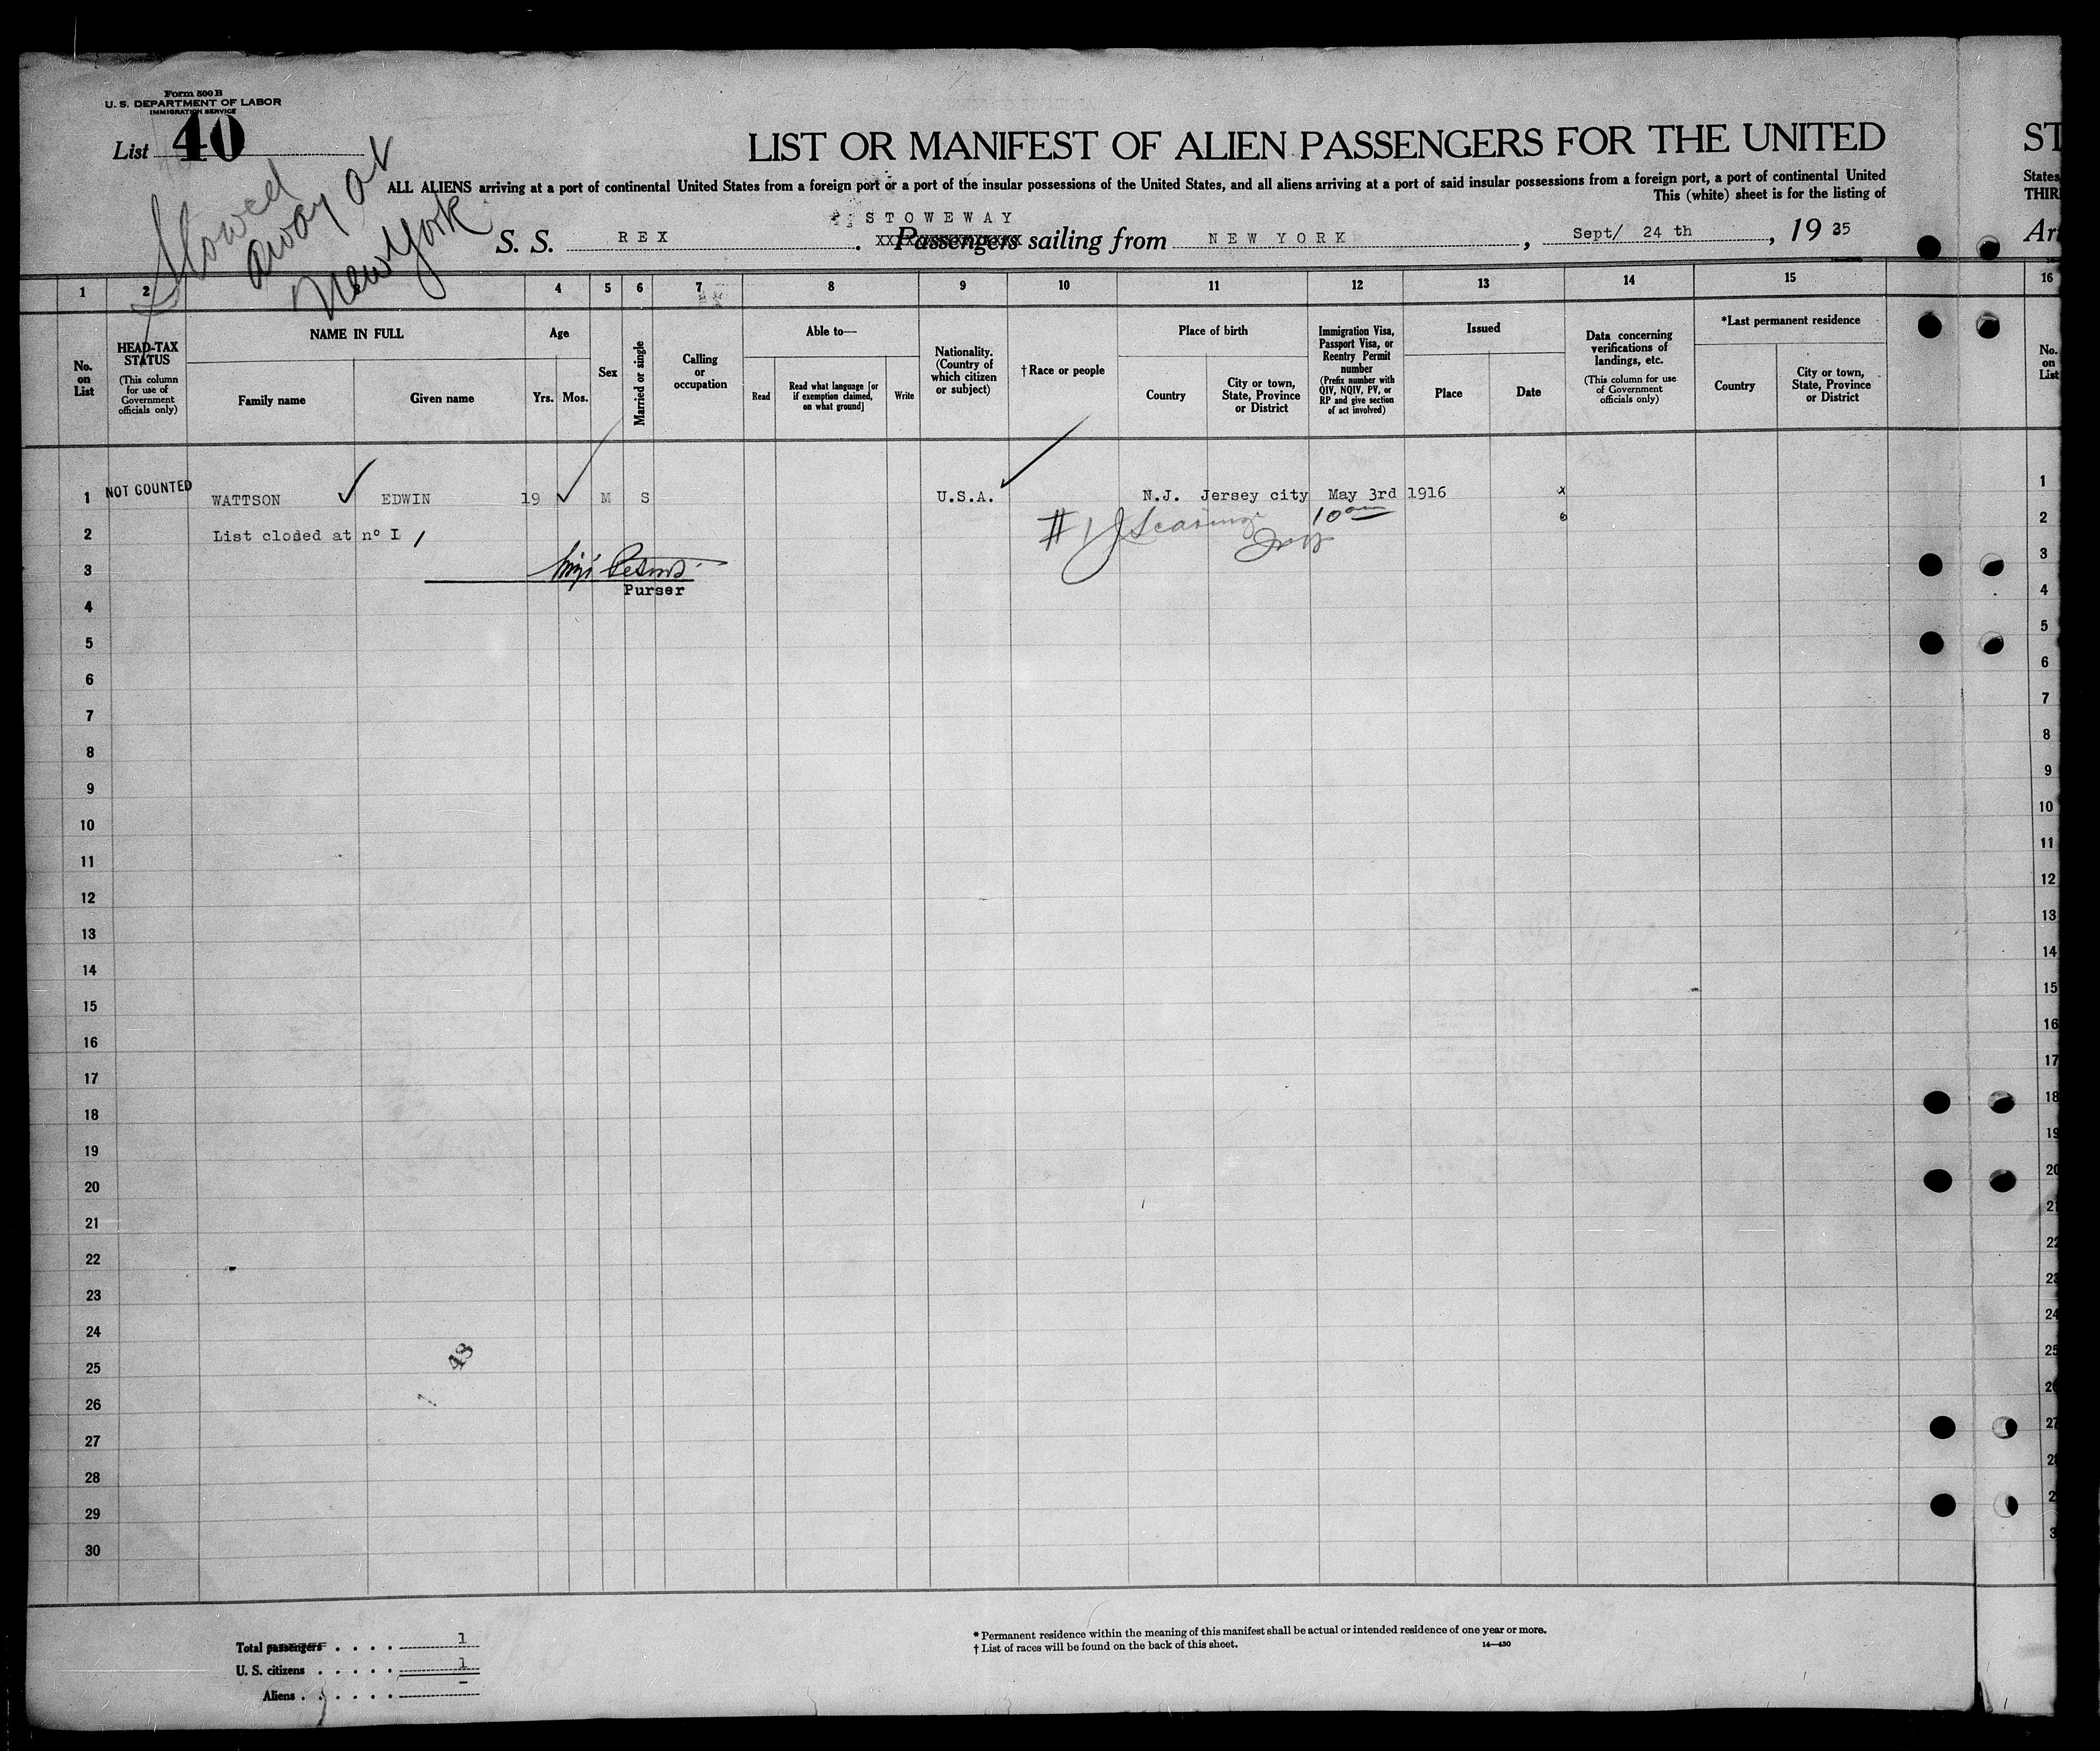 Form 500 B
U. S. DEPARTMENT OF LABOR
IMMIGRATION SERVICE
List 40
Stowed
away at
New York
LIST OR MANIFEST OF ALIEN PASSENGERS FOR THE UNITED
ST
ALL ALIENS arriving at a port of continental United States from a foreign port or a port of the insular possessions of the United States, and all aliens arriving at a port of said insular possessions from a foreign port, a port of continental United
States
This (white) sheet is for the listing of
THIR
STOWEWAY
S. S. REX . Passengers sailing from NEW YORK , Sept/ 24 th , 19 35
Ar
1 2 3 4 5 6 7 8 9 10 11 12 13 14 15 16
No. on List
HEAD-TAX STATUS
(This column for use of Government officials only)
NAME IN FULL
Family name
Given name
Age
Yrs.
Mos.
Sex
Married or single
Calling or occupation
Able to—
Read
Read what language [or if exemption claimed, on what ground]
Write
Nationality. (Country of which citizen or subject)
† Race or people
Place of birth
Country
City or town, State, Province or District
Immigration Visa, Passport Visa, or Reentry Permit number
(Prefix number with QIV, NQIV, PV, or RP and give section of act involved)
Issued
Place
Date
Data concerning verifications of landings, etc.
(This column for use of Government officials only)
*Last permanent residence
Country
City or town, State, Province or District
No. on List
1 NOT COUNTED WATTSON EDWIN 19 M S U.S.A. N.J. Jersey city May 3rd 1916 x 1
2 List closed at nº I # 1 10 am 6 2
3 3
Purser
4 4
5 5
6 6
7 7
8 8
9 9
10 10
11 11
12 12
13 13
14 14
15 15
16 16
17 17
18 18
19 19
20 20
21 21
22 22
23 23
24 24
48
25 25
26 26
27 27
28 2
29 2
30 3
Total passengers . . . . 1
U. S. citizens . . . . . 1
Aliens . . . . . . –
* Permanent residence within the meaning of this manifest shall be actual or intended residence of one year or more.
† List of races will be found on the back of this sheet.
14—430